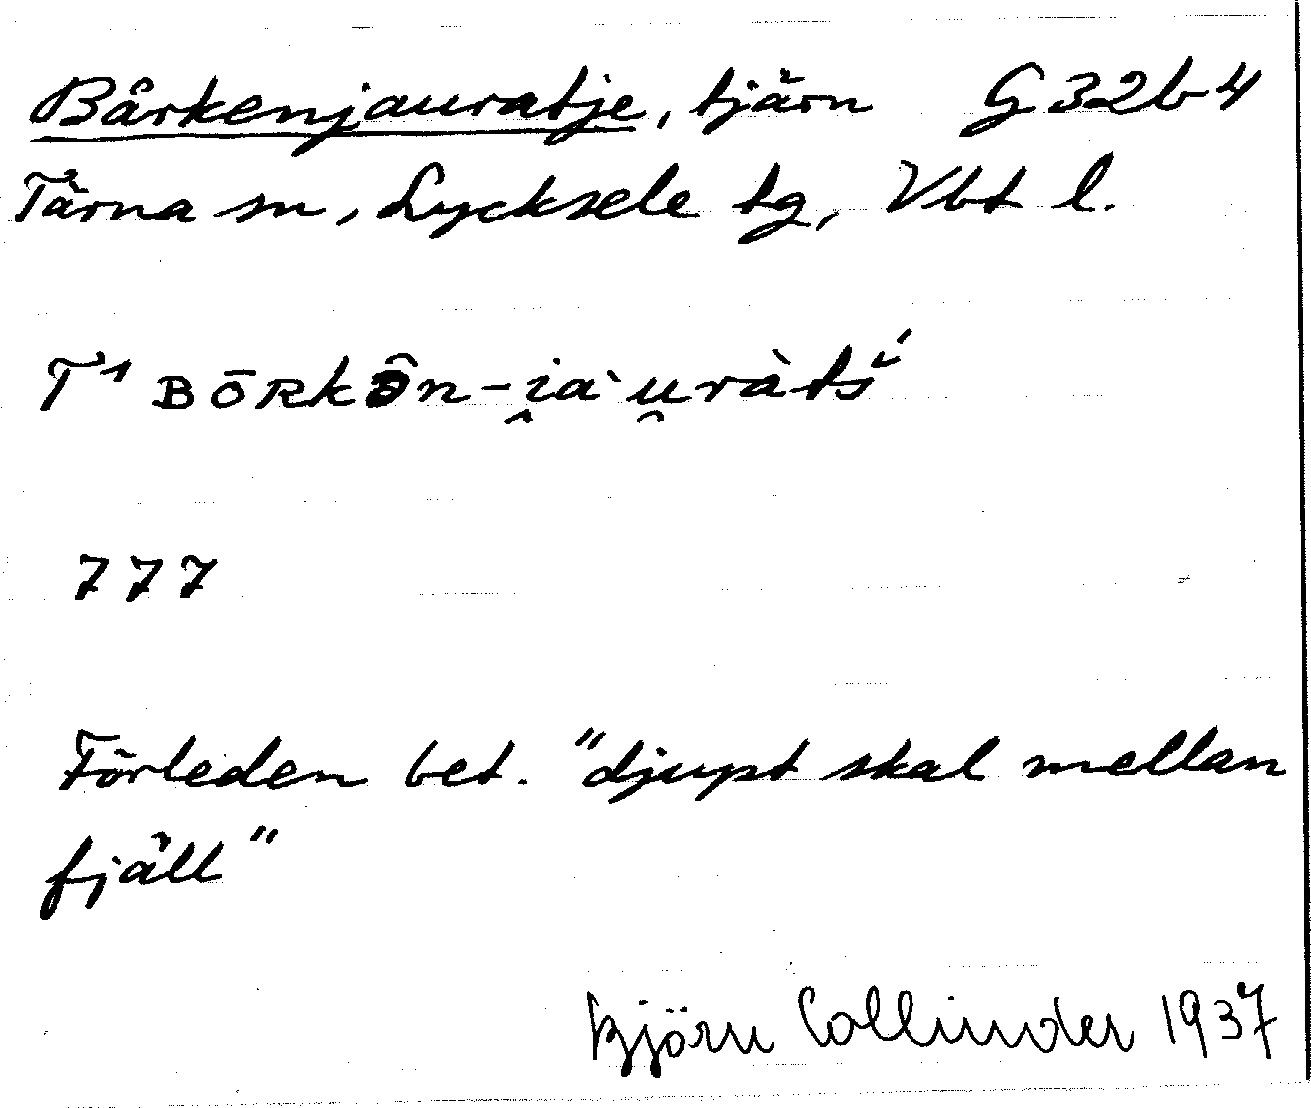 Bårkenjauratje, tjärn G32b4
Tärna sn, Lycksele tg, Vbt l.
T¹ BŌRkôn-i̭a`u̯ràtš́
777
Förleden bet. "djupt skal mellan
fjäll"
Björn Collinder 1937